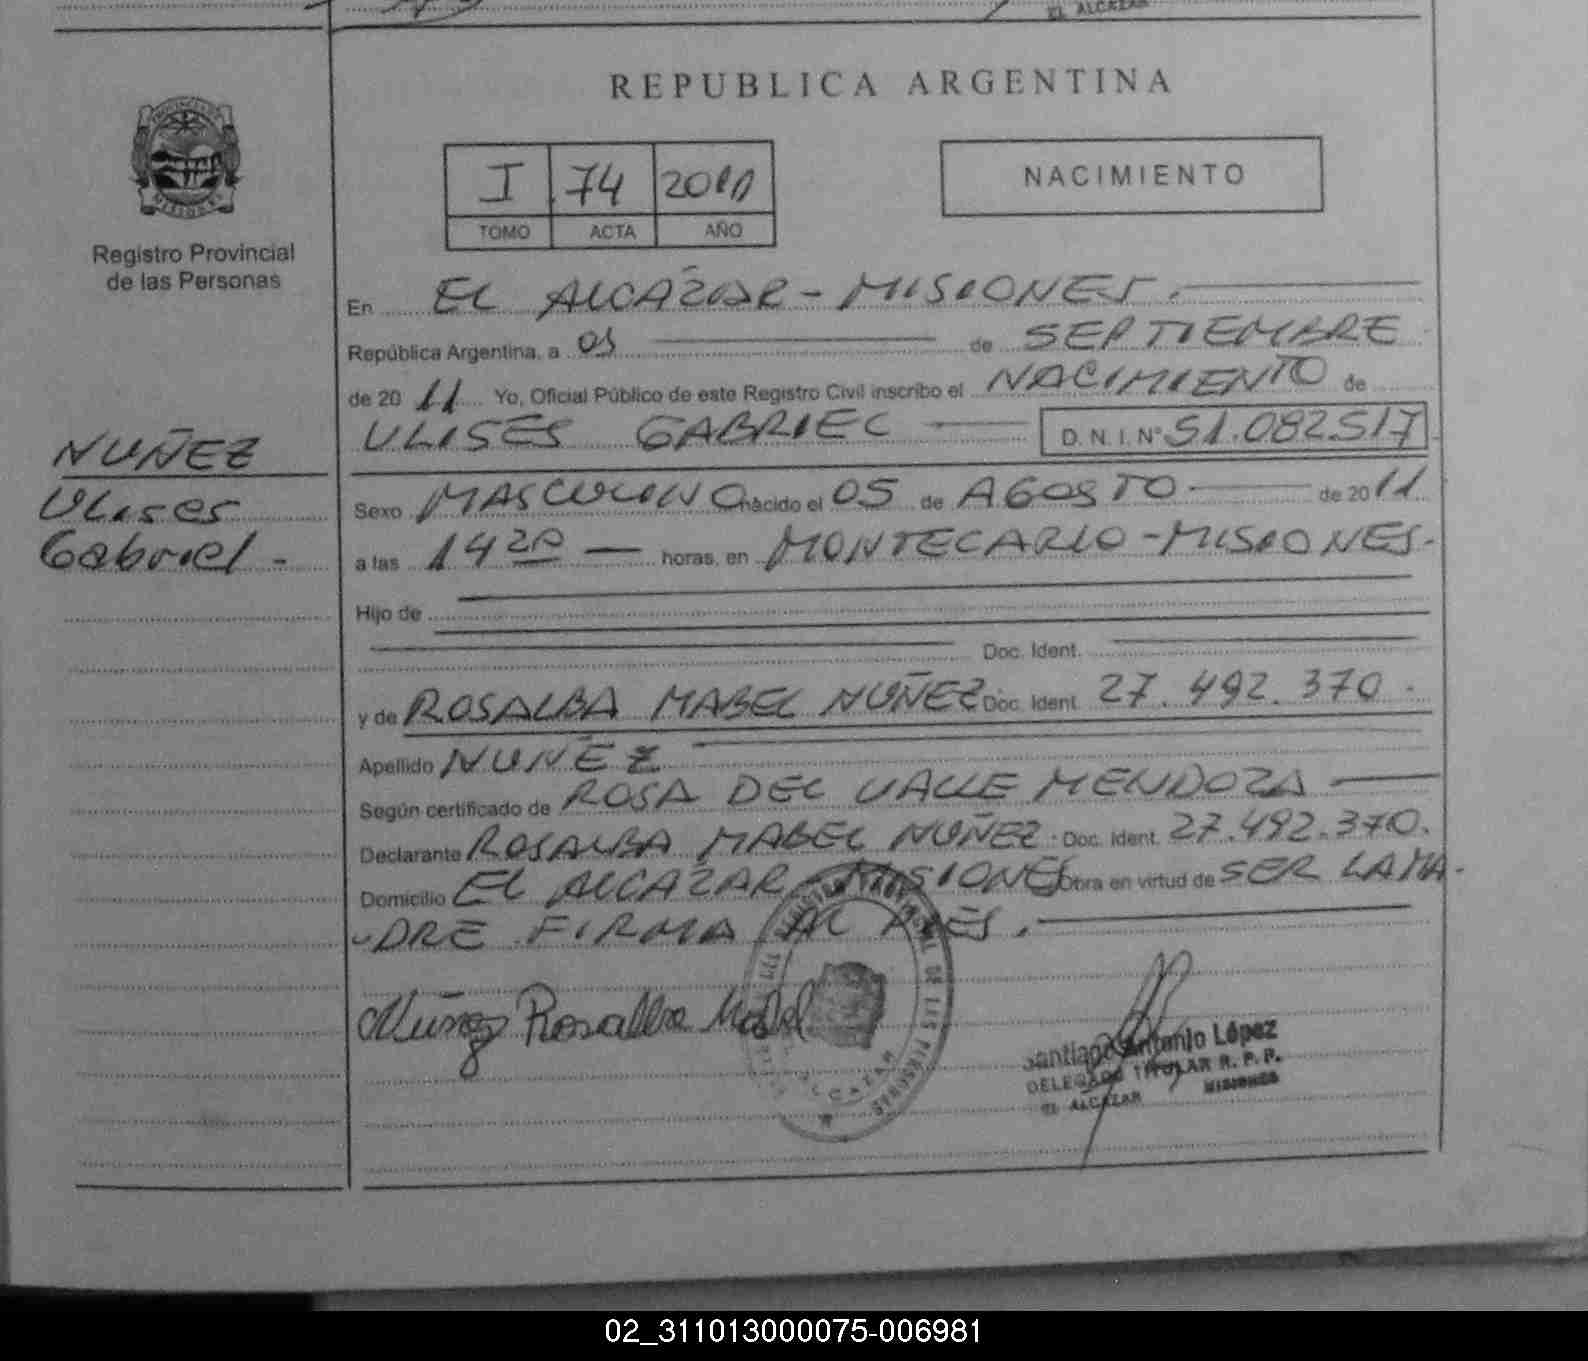 EL ALCAZAR
REPUBLICA ARGENTINA
PROVINCIA DE
MISIONES
Registro Provincial
de las Personas
I 74 2011
TOMO ACTA AÑO
NACIMIENTO
En EL ALCÁZAR - MISIONES.
República Argentina, a 05 de SEPTIEMBRE
de 2011 Yo, Oficial Público de este Registro Civil inscribo el NACIMIENTO de
ULISES GABRIEL D.N.I.N° 51.082.517
NUÑEZ
Ulises
Gabriel -
Sexo MASCULINO nacido el 05 de AGOSTO de 2011
a las 14 20 horas, en MONTECARLO - MISIONES.
Hijo de
Doc. Ident.
y de ROSALBA MABEL NUÑEZ Doc. Ident. 27.492.370.
Apellido NUÑEZ
Según certificado de ROSA DEL VALLE MENDOZA
Declarante ROSALBA MABEL NUÑEZ. Doc. Ident. 27.492.370.
Domicilio EL ALCAZAR - MISIONES Obra en virtud de SER LA MA-
-DRE FIRMA AL PIES.
Nuñez Rosalba Mabel
REGISTRO PROVINCIAL DE LAS PERSONAS
ALCAZAR
Santiago Antonio López
DELEGADO TITULAR R. P. P.
EL ALCAZAR MISIONES
02_311013000075-006981